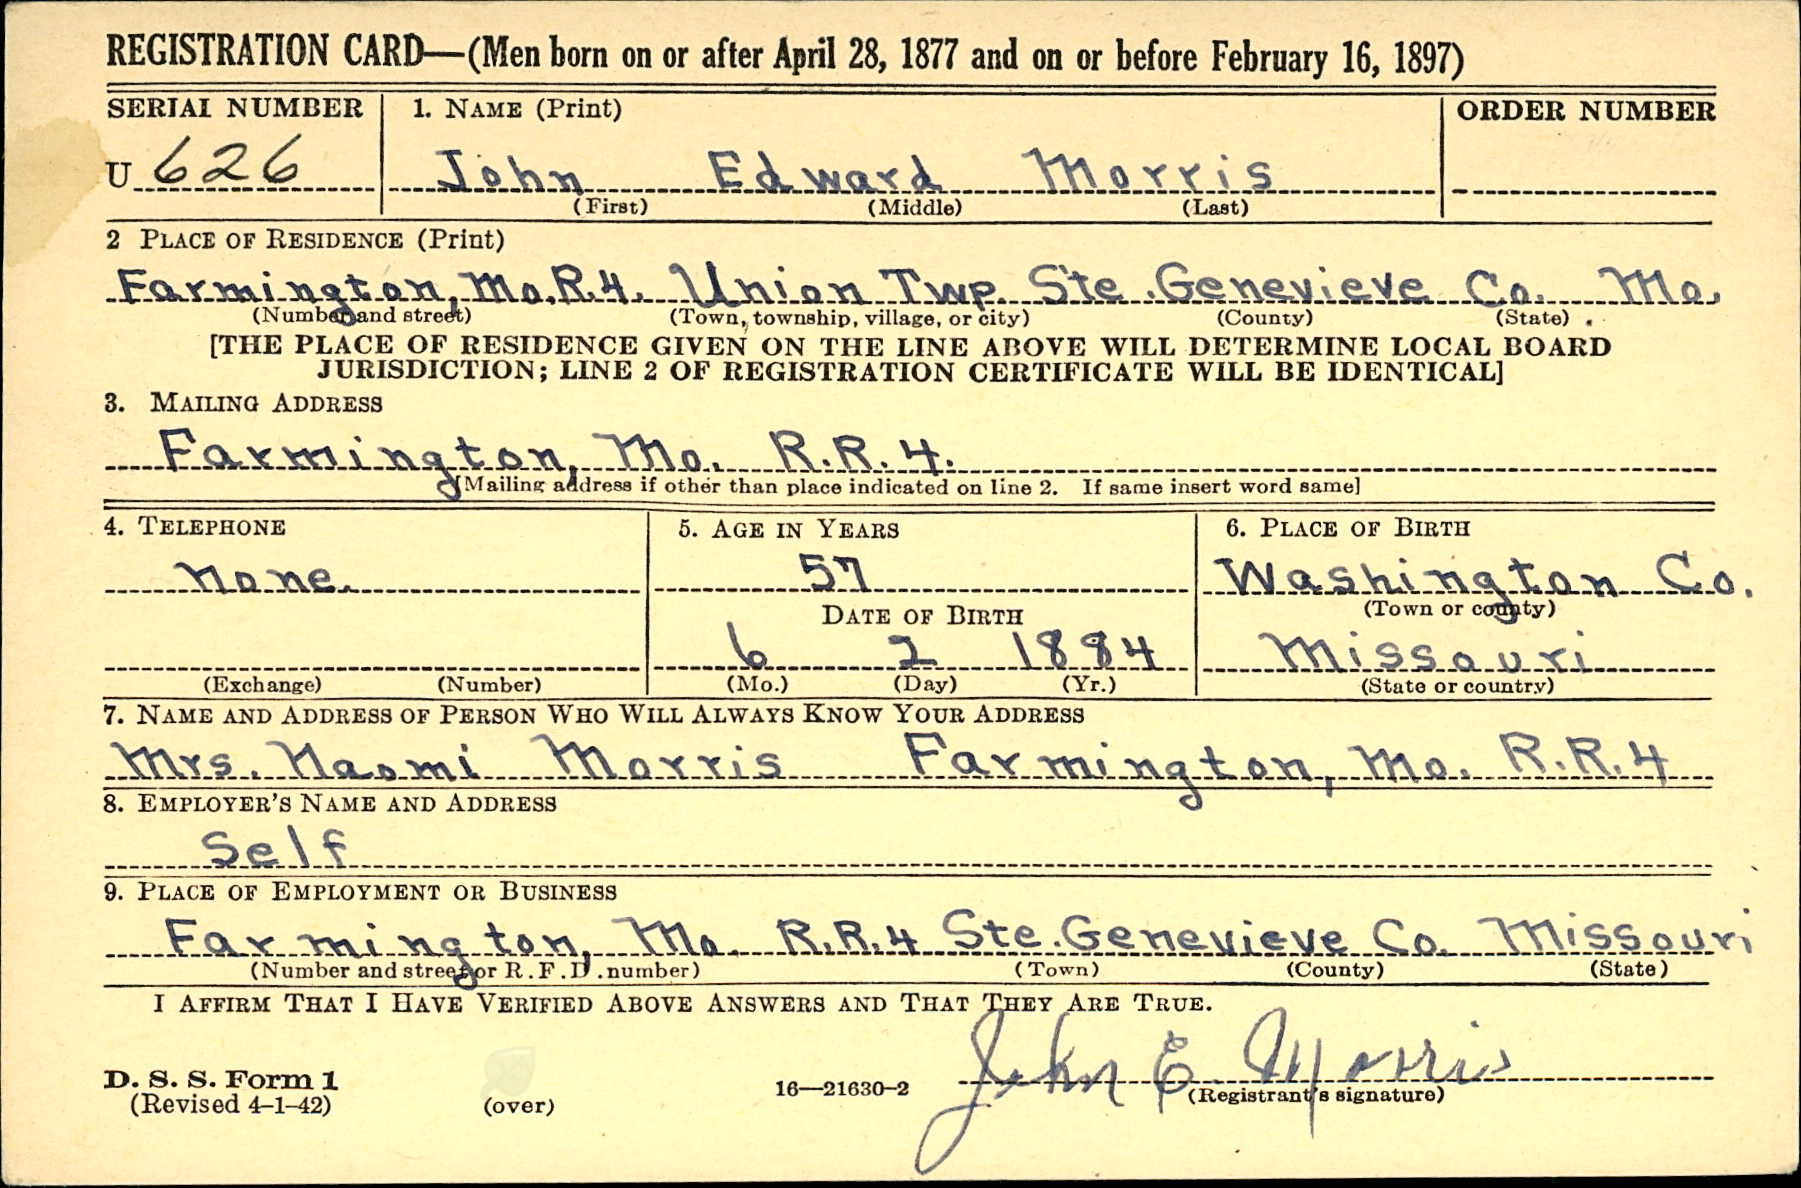 REGISTRATION CARD—(Men born on or after April 28, 1877 and on or before February 16, 1897)
SERIAL NUMBER 1. NAME (Print) ORDER NUMBER
U 626 John Edward Morris
(First) (Middle) (Last)
2 PLACE OF RESIDENCE (Print)
Farmington, Mo. R.4. Union Twp. Ste. Genevieve Co. Mo.
(Number and street) (Town, township, village, or city) (County) (State)
[THE PLACE OF RESIDENCE GIVEN ON THE LINE ABOVE WILL DETERMINE LOCAL BOARD
JURISDICTION; LINE 2 OF REGISTRATION CERTIFICATE WILL BE IDENTICAL]
3. MAILING ADDRESS
Farmington, Mo. R.R.4.
[Mailing address if other than place indicated on line 2. If same insert word same]
4. TELEPHONE 5. AGE IN YEARS 6. PLACE OF BIRTH
None. 57 Washington Co.
DATE OF BIRTH (Town or county)
6 2 1884 Missouri
(Exchange) (Number) (Mo.) (Day) (Yr.) (State or country)
7. NAME AND ADDRESS OF PERSON WHO WILL ALWAYS KNOW YOUR ADDRESS
Mrs. Naomi Morris Farmington, Mo. R.R.4
8. EMPLOYER'S NAME AND ADDRESS
Self
9. PLACE OF EMPLOYMENT OR BUSINESS
Farmington, Mo. R.R.4 Ste. Genevieve Co. Missouri
(Number and street or R.F.D. number) (Town) (County) (State)
I AFFIRM THAT I HAVE VERIFIED ABOVE ANSWERS AND THAT THEY ARE TRUE.
John E. Morris
D. S. S. Form 1
(Revised 4-1-42) (over) 16—21630-2 (Registrant's signature)